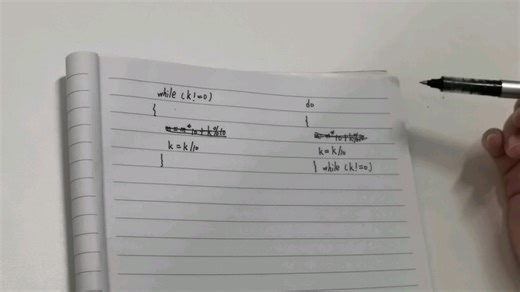 while (k!=0)
{
m=m*10+k%10
k=k/10
}
do
{
m=m*10+k%10
k=k/10
} while (k!=0)